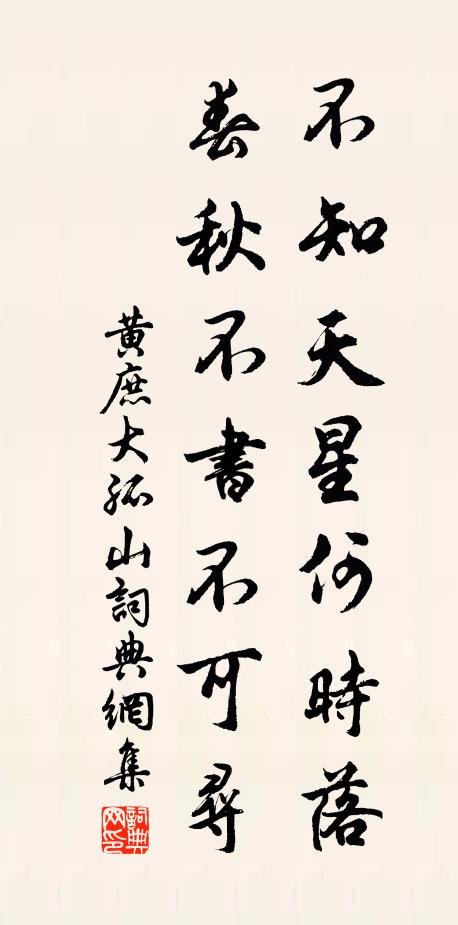 不知天星何時落
春秋不書不可尋
黃庶大孤山詞典網集
詞典網印